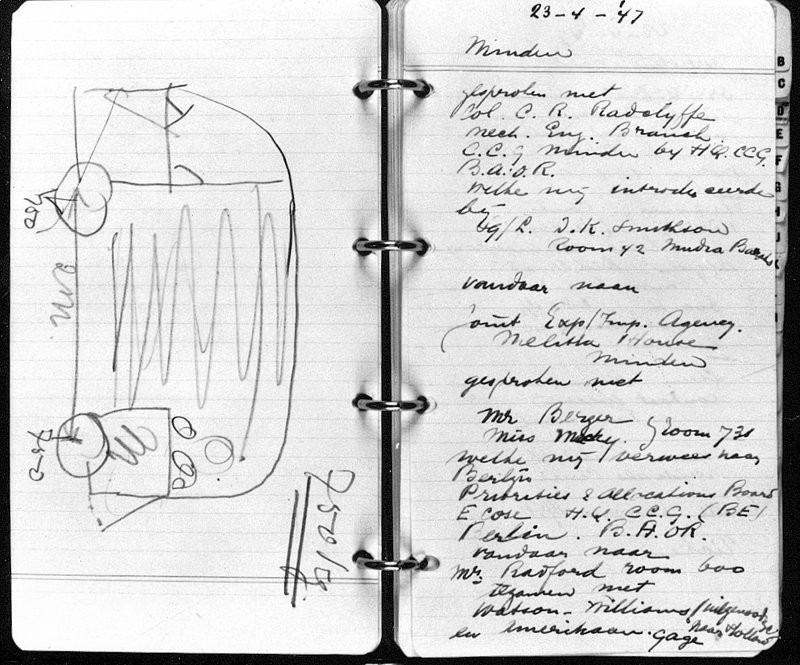 750
750
750 kg
23-4-'47
Minden
gesproken met
Col. C. R. Radclyffe
Mech. Eng. Branch
C.C.G Minden by HQ. CCG.
B.A.O.R.
welke mij introduceerde
bij
J.K. Smithson
Room 42 Mudra
vandaar naar
Joint Exp/Imp. Agency.
Melitta House
Minden
gesproken met
Mr. Berger
Miss room 731
welke mij verwees naar
Berlijn
Priorities & Allocations Board
Ecose H.Q. C.C.G. (BE)
Berlin. B.A.O.R.
vandaar naar
Mr. Radford room 600
tezamen met
Watson-Williams
en Amerikaan. Gage naar Holland
B
C
D
E
F
G
H
J
K